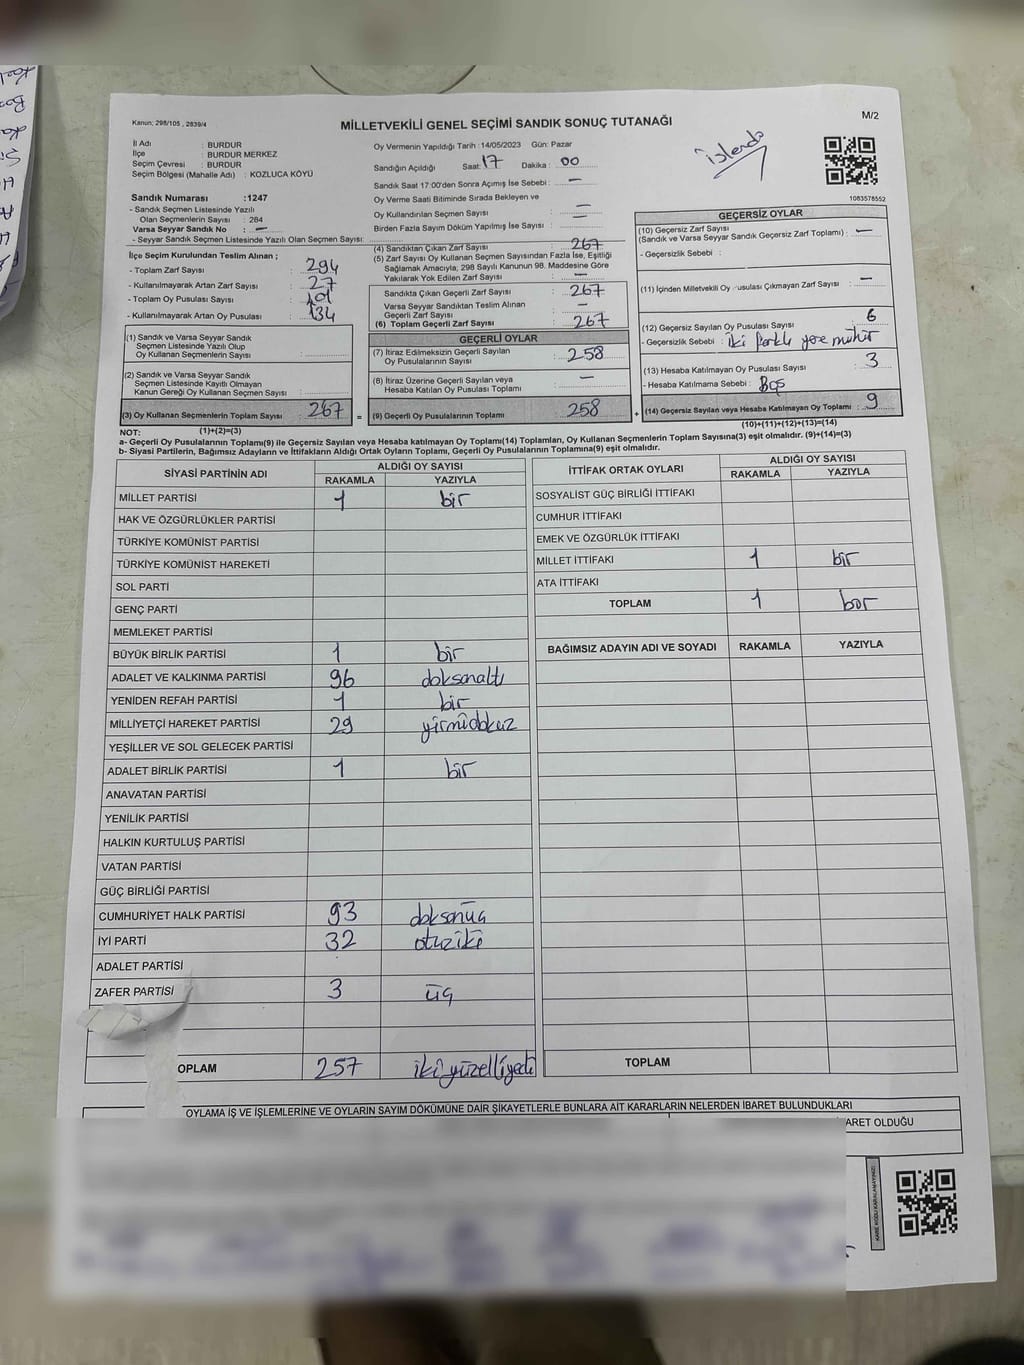 Kanun; 298/105 , 2839/4
MİLLETVEKİLİ GENEL SEÇİMİ SANDIK SONUÇ TUTANAĞI
M/2
İl Adı : BURDUR
İlçe : BURDUR MERKEZ
Seçim Çevresi : BURDUR
Seçim Bölgesi (Mahalle Adı) : KOZLUCA KÖYÜ
Sandık Numarası :1247
- Sandık Seçmen Listesinde Yazılı
Olan Seçmenlerin Sayısı : 284
Varsa Seyyar Sandık No : -
- Seyyar Sandık Seçmen Listesinde Yazılı Olan Seçmen Sayısı:
İlçe Seçim Kurulundan Teslim Alınan ;
- Toplam Zarf Sayısı : 294
- Kullanılmayarak Artan Zarf Sayısı : 27
- Toplam Oy Pusulası Sayısı :
- Kullanılmayarak Artan Oy Pusulası : 134
(1) Sandık ve Varsa Seyyar Sandık
Seçmen Listesinde Yazılı Olup
Oy Kullanan Seçmenlerin Sayısı :
(2) Sandık ve Varsa Seyyar Sandık
Seçmen Listesinde Kayıtlı Olmayan
Kanun Gereği Oy Kullanan Seçmen Sayısı :
(3) Oy Kullanan Seçmenlerin Toplam Sayısı : 267
(1)+(2)=(3)
Oy Vermenin Yapıldığı Tarih :14/05/2023 Gün: Pazar
Sandığın Açıldığı Saat: 17 Dakika : 00
Sandık Saat 17:00'den Sonra Açılmış İse Sebebi : -
Oy Verme Saati Bitiminde Sırada Bekleyen ve
Oy Kullandırılan Seçmen Sayısı : -
Birden Fazla Sayım Döküm Yapılmış İse Sayısı : -
(4) Sandıktan Çıkan Zarf Sayısı : 267
(5) Zarf Sayısı Oy Kullanan Seçmen Sayısından Fazla İse, Eşitliği
Sağlamak Amacıyla; 298 Sayılı Kanunun 98. Maddesine Göre
Yakılarak Yok Edilen Zarf Sayısı : -
Sandıkta Çıkan Geçerli Zarf Sayısı : 267
Varsa Seyyar Sandıktan Teslim Alınan
Geçerli Zarf Sayısı : -
(6) Toplam Geçerli Zarf Sayısı : 267
GEÇERLİ OYLAR
(7) İtiraz Edilmeksizin Geçerli Sayılan
Oy Pusulalarının Sayısı : 258
(8) İtiraz Üzerine Geçerli Sayılan veya
Hesaba Katılan Oy Pusulası Toplamı : -
= (9) Geçerli Oy Pusulalarının Toplamı : 258
işlendi
1083578552
GEÇERSİZ OYLAR
(10) Geçersiz Zarf Sayısı
(Sandık ve Varsa Seyyar Sandık Geçersiz Zarf Toplamı) : -
- Geçersizlik Sebebi :
(11) İçinden Milletvekili Oy Pusulası Çıkmayan Zarf Sayısı : -
(12) Geçersiz Sayılan Oy Pusulası Sayısı : 6
- Geçersizlik Sebebi : iki farklı yere mühür
(13) Hesaba Katılmayan Oy Pusulası Sayısı : 3
- Hesaba Katılmama Sebebi : Boş
+ (14) Geçersiz Sayılan veya Hesaba Katılmayan Oy Toplamı : 9
(10)+(11)+(12)+(13)=(14)
NOT:
a- Geçerli Oy Pusulalarının Toplamı(9) ile Geçersiz Sayılan veya Hesaba katılmayan Oy Toplamı(14) Toplamları, Oy Kullanan Seçmenlerin Toplam Sayısına(3) eşit olmalıdır. (9)+(14)=(3)
b- Siyasi Partilerin, Bağımsız Adayların ve İttifakların Aldığı Ortak Oyların Toplamı, Geçerli Oy Pusulalarının Toplamına(9) eşit olmalıdır.
SİYASİ PARTİNİN ADI ALDIĞI OY SAYISI
RAKAMLA YAZIYLA
MİLLET PARTİSİ 1 bir
HAK VE ÖZGÜRLÜKLER PARTİSİ
TÜRKİYE KOMÜNİST PARTİSİ
TÜRKİYE KOMÜNİST HAREKETİ
SOL PARTİ
GENÇ PARTİ
MEMLEKET PARTİSİ
BÜYÜK BİRLİK PARTİSİ 1 bir
ADALET VE KALKINMA PARTİSİ 96 doksanaltı
YENİDEN REFAH PARTİSİ 1 bir
MİLLİYETÇİ HAREKET PARTİSİ 29 yirmidokuz
YEŞİLLER VE SOL GELECEK PARTİSİ
ADALET BİRLİK PARTİSİ 1 bir
ANAVATAN PARTİSİ
YENİLİK PARTİSİ
HALKIN KURTULUŞ PARTİSİ
VATAN PARTİSİ
GÜÇ BİRLİĞİ PARTİSİ
CUMHURİYET HALK PARTİSİ 93 doksanüç
İYİ PARTİ 32 otuziki
ADALET PARTİSİ
ZAFER PARTİSİ 3 üç
OPLAM 257 ikiyüzelliyedi
İTTİFAK ORTAK OYLARI ALDIĞI OY SAYISI
RAKAMLA YAZIYLA
SOSYALİST GÜÇ BİRLİĞİ İTTİFAKI
CUMHUR İTTİFAKI
EMEK VE ÖZGÜRLÜK İTTİFAKI
MİLLET İTTİFAKI 1 bir
ATA İTTİFAKI
TOPLAM 1 bir
BAĞIMSIZ ADAYIN ADI VE SOYADI RAKAMLA YAZIYLA
TOPLAM
OYLAMA İŞ VE İŞLEMLERİNE VE OYLARIN SAYIM DÖKÜMÜNE DAİR ŞİKAYETLERLE BUNLARA AİT KARARLARIN NELERDEN İBARET BULUNDUKLARI
ARET OLDUĞU
KARE KODU KARALAMAYINIZ!